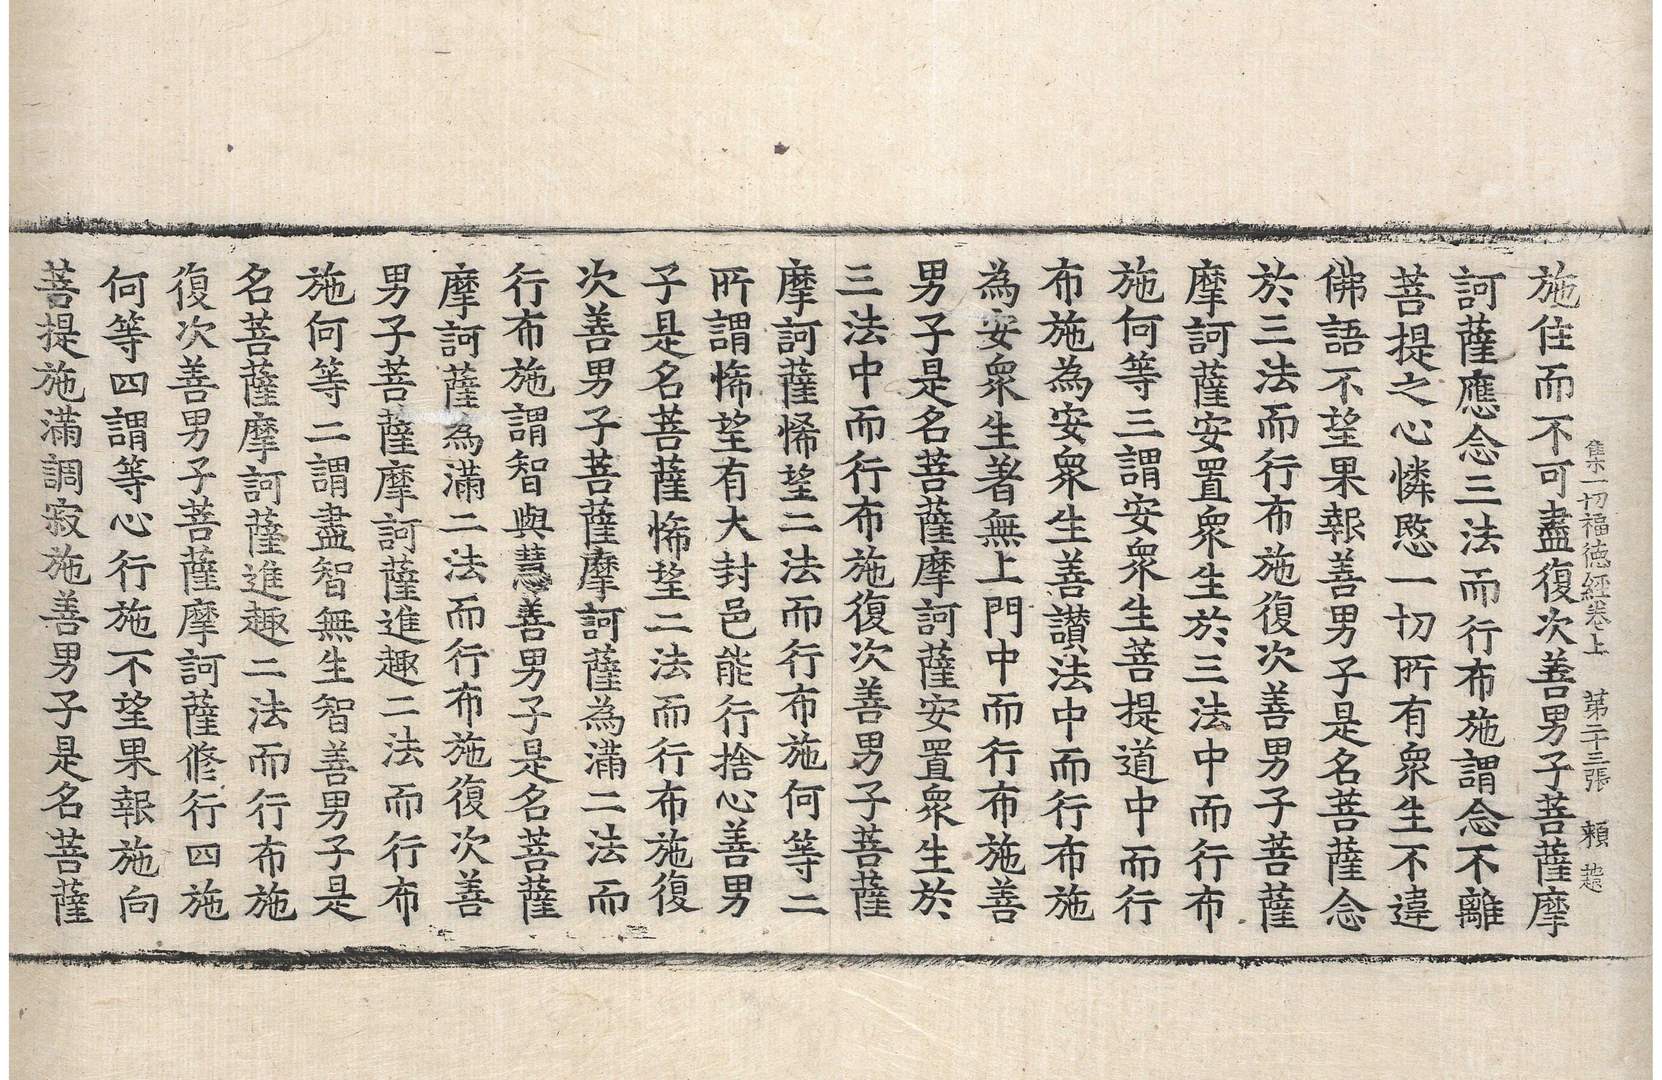 集一切福德經卷上　第二十三張　頼
施住而不可盡復次善男子菩薩摩
訶薩應念三法而行布施謂念不離
菩提之心憐愍一切所有衆生不違
佛語不望果報善男子是名菩薩念
於三法而行布施復次善男子菩薩
摩訶薩安置衆生於三法中而行布
施何等三謂安衆生菩提道中而行
布施為安衆生善讃法中而行布施
為安衆生著無上門中而行布施善
男子是名菩薩摩訶薩安置衆生於
三法中而行布施復次善男子菩薩
摩訶薩悕望二法而行布施何等二
所謂悕望有大封邑能行捨心善男
子是名菩薩悕望二法而行布施復
次善男子菩薩摩訶薩為滿二法而
行布施謂智與慧善男子是名菩薩
摩訶薩為滿二法而行布施復次善
男子菩薩摩訶薩進趣二法而行布
施何等二謂盡智無生智善男子是
名菩薩摩訶薩進趣二法而行布施
復次善男子菩薩摩訶薩修行四施
何等四謂等心行施不望果報施向
菩提施滿調寂施善男子是名菩薩